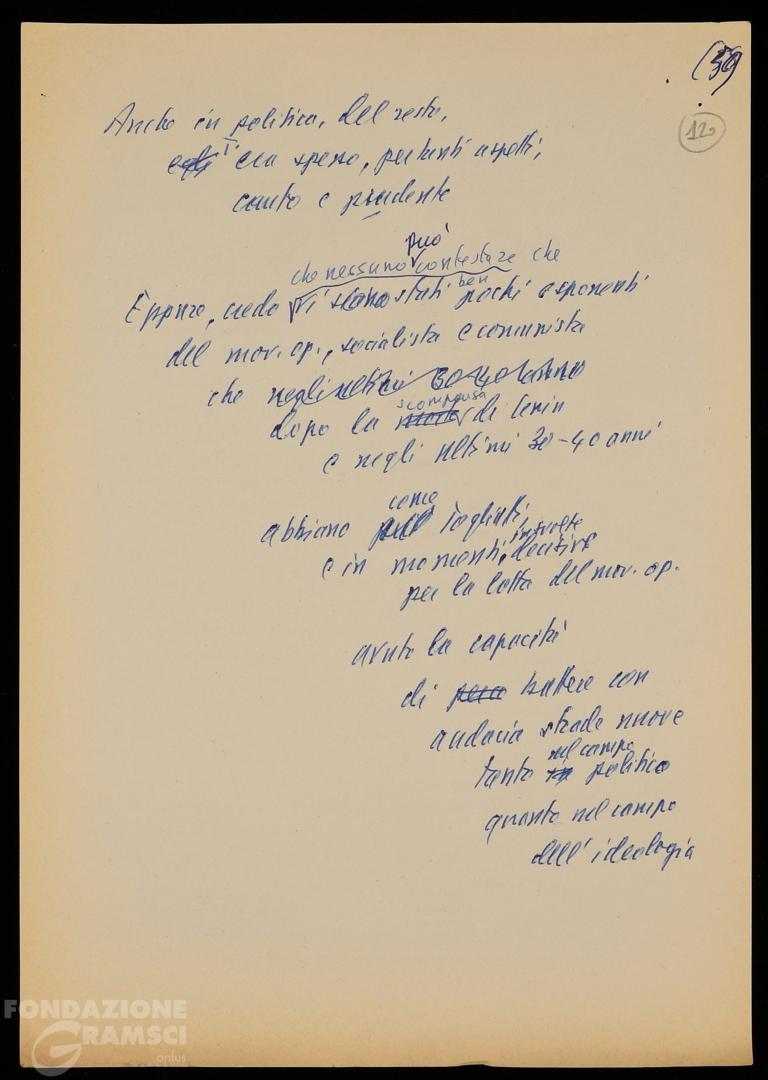 (59)
120
Anche in politica, del resto,
egli era spesso, per tanti aspetti,
cauto e prudente
può
che nessuno contestare che
Eppure, credo vi siano stati ben pochi esponenti
del mov. op., socialista e comunista
che negli ultimi 30-40 anni
scomparsa
dopo la morte di Lenin
e negli ultimi 30-40 anni
come
abbiano più Togliatti,
in svolte
e in momenti, decisive
per la lotta del mov. op.
avuto la capacità
di battere con
audacia strade nuove
nel campo
tanto in politico
quanto nel campo
dell'ideologia
FONDAZIONE
GRAMSCI
onlus